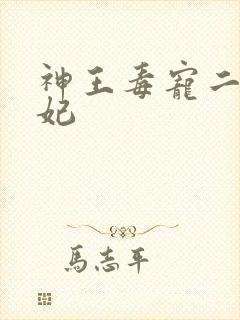 神王毒寵二
妃
馬志平